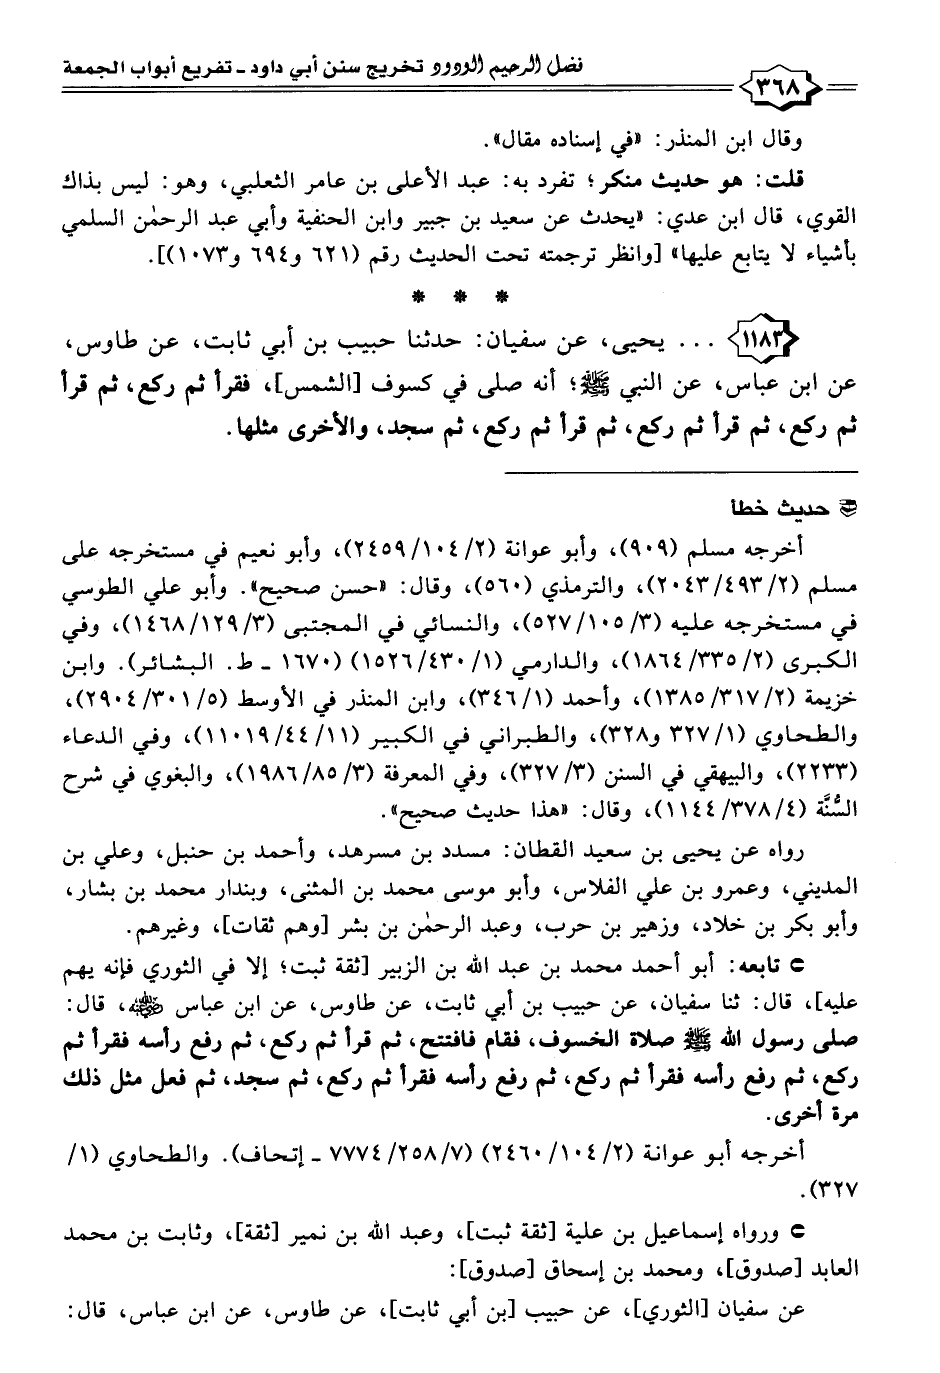 فضل الرحيم الودود تخريج سنن أبي داود ـ تفريع أبواب الجمعة
٣٦٨
وقال ابن المنذر: «في إسناده مقال».
قلت: هو حديث منكر؛ تفرد به: عبد الأعلى بن عامر الثعلبي، وهو: ليس بذاك
القوي، قال ابن عدي: «يحدث عن سعيد بن جبير وابن الحنفية وأبي عبد الرحمٰن السلمي
بأشياء لا يتابع عليها» [وانظر ترجمته تحت الحديث رقم (٦٢١ و٦٩٤ و١٠٧٣)].
* * *
١١٨٣ ... يحيى، عن سفيان: حدثنا حبيب بن أبي ثابت، عن طاوس،
عن ابن عباس، عن النبي ﷺ؛ أنه صلى في كسوف [الشمس]، فقرأ ثم ركع، ثم قرأ
ثم ركع، ثم قرأ ثم ركع، ثم قرأ ثم ركع، ثم سجد، والأخرى مثلها.
حديث خطأ
أخرجه مسلم (٩٠٩)، وأبو عوانة (٢/١٠٤/٢٤٥٩)، وأبو نعيم في مستخرجه على
مسلم (٢/٤٩٣/٢٠٤٣)، والترمذي (٥٦٠)، وقال: «حسن صحيح». وأبو علي الطوسي
في مستخرجه عليه (٣/١٠٥/٥٢٧)، والنسائي في المجتبى (٣/١٢٩/١٤٦٨)، وفي
الكبرى (٢/٣٣٥/١٨٦٤)، والدارمي (١/٤٣٠/١٥٢٦) (١٦٧٠ ـ ط. البشائر). وابن
خزيمة (٢/٣١٧/١٣٨٥)، وأحمد (١/٣٤٦)، وابن المنذر في الأوسط (٥/٣٠١/٢٩٠٤)،
والطحاوي (١/٣٢٧ و٣٢٨)، والطبراني في الكبير (١١/٤٤/١١٠١٩)، وفي الدعاء
(٢٢٣٣)، والبيهقي في السنن (٣/٣٢٧)، وفي المعرفة (٣/٨٥/١٩٨٦)، والبغوي في شرح
السُّنَّة (٤/٣٧٨/١١٤٤)، وقال: «هذا حديث صحيح».
رواه عن يحيى بن سعيد القطان: مسدد بن مسرهد، وأحمد بن حنبل، وعلي بن
المديني، وعمرو بن علي الفلاس، وأبو موسى محمد بن المثنى، وبندار محمد بن بشار،
وأبو بكر بن خلاد، وزهير بن حرب، وعبد الرحمٰن بن بشر [وهم ثقات]، وغيرهم.
تابعه: أبو أحمد محمد بن عبد الله بن الزبير [ثقة ثبت؛ إلا في الثوري فإنه يهم
عليه]، قال: ثنا سفيان، عن حبيب بن أبي ثابت، عن طاوس، عن ابن عباس ﵁، قال:
صلى رسول الله ﷺ صلاة الخسوف، فقام فافتتح، ثم قرأ ثم ركع، ثم رفع رأسه فقرأ ثم
ركع، ثم رفع رأسه فقرأ ثم ركع، ثم رفع رأسه فقرأ ثم ركع، ثم سجد، ثم فعل مثل ذلك
مرة أخرى.
أخرجه أبو عوانة (٢/١٠٤/٢٤٦٠) (٧/٢٥٨/٧٧٧٤ ـ إتحاف). والطحاوي (١/
٣٢٧).
ورواه إسماعيل بن علية [ثقة ثبت]، وعبد الله بن نمير [ثقة]، وثابت بن محمد
العابد [صدوق]، ومحمد بن إسحاق [صدوق]:
عن سفيان [الثوري]، عن حبيب [بن أبي ثابت]، عن طاوس، عن ابن عباس، قال: